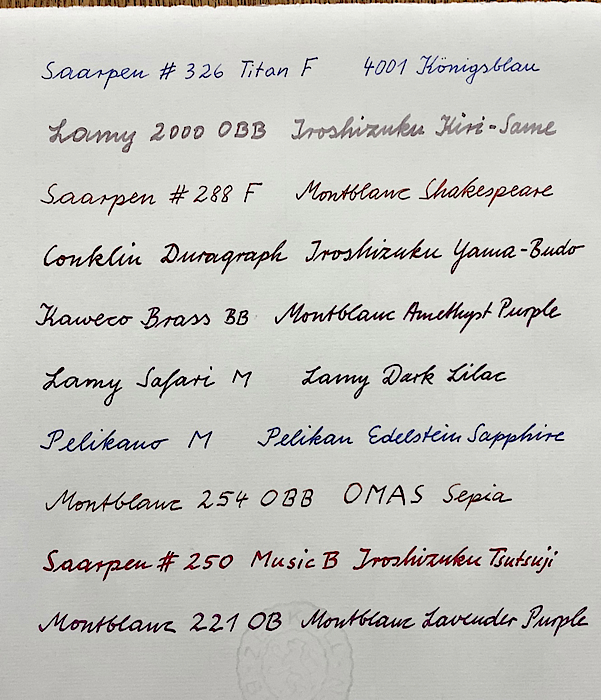 Saarpen # 326 Titan F 4001 Königsblau
Lamy 2000 OBB Iroshizuku Kiri-Same
Saarpen # 288 F Montblanc Shakespeare
Conklin Duragraph Iroshizuku Yama-Budo
Kaweco Brass BB Montblanc Amethyst Purple
Lamy Safari M Lamy Dark Lilac
Pelikano M Pelikan Edelstein Sapphire
Montblanc 254 OBB OMAS Sepia
Saarpen # 250 Music B Iroshizuku Tsutsuji
Montblanc 221 OB Montblanc Lavender Purple